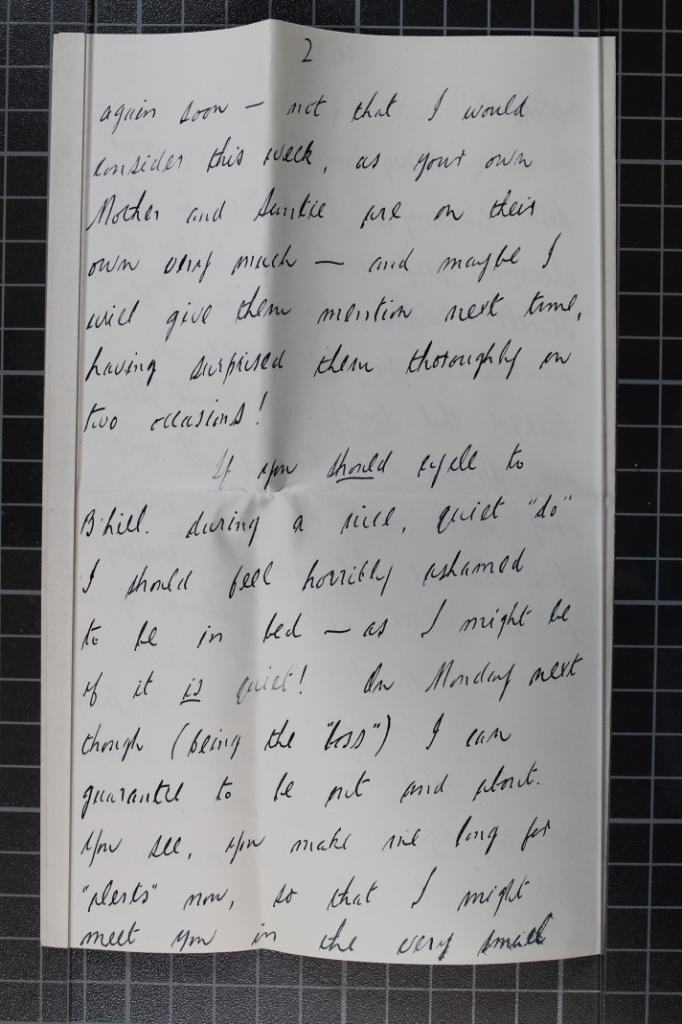 2
again soon — not that I would
consider this week, as your own
Mother and Auntie are on their
own very much — and maybe I
will give them mention next time,
having surprised them thoroughly on
two occasions!
If you should cycle to
B'hill. during a nice, quiet "do"
I should feel horribly ashamed
to be in bed — as I might be
if it is quiet! On Monday next
though (being the "boss") I can
guarantee to be out and about.
You see, you make me long for
"alerts" now, so that I might
meet you in the very small